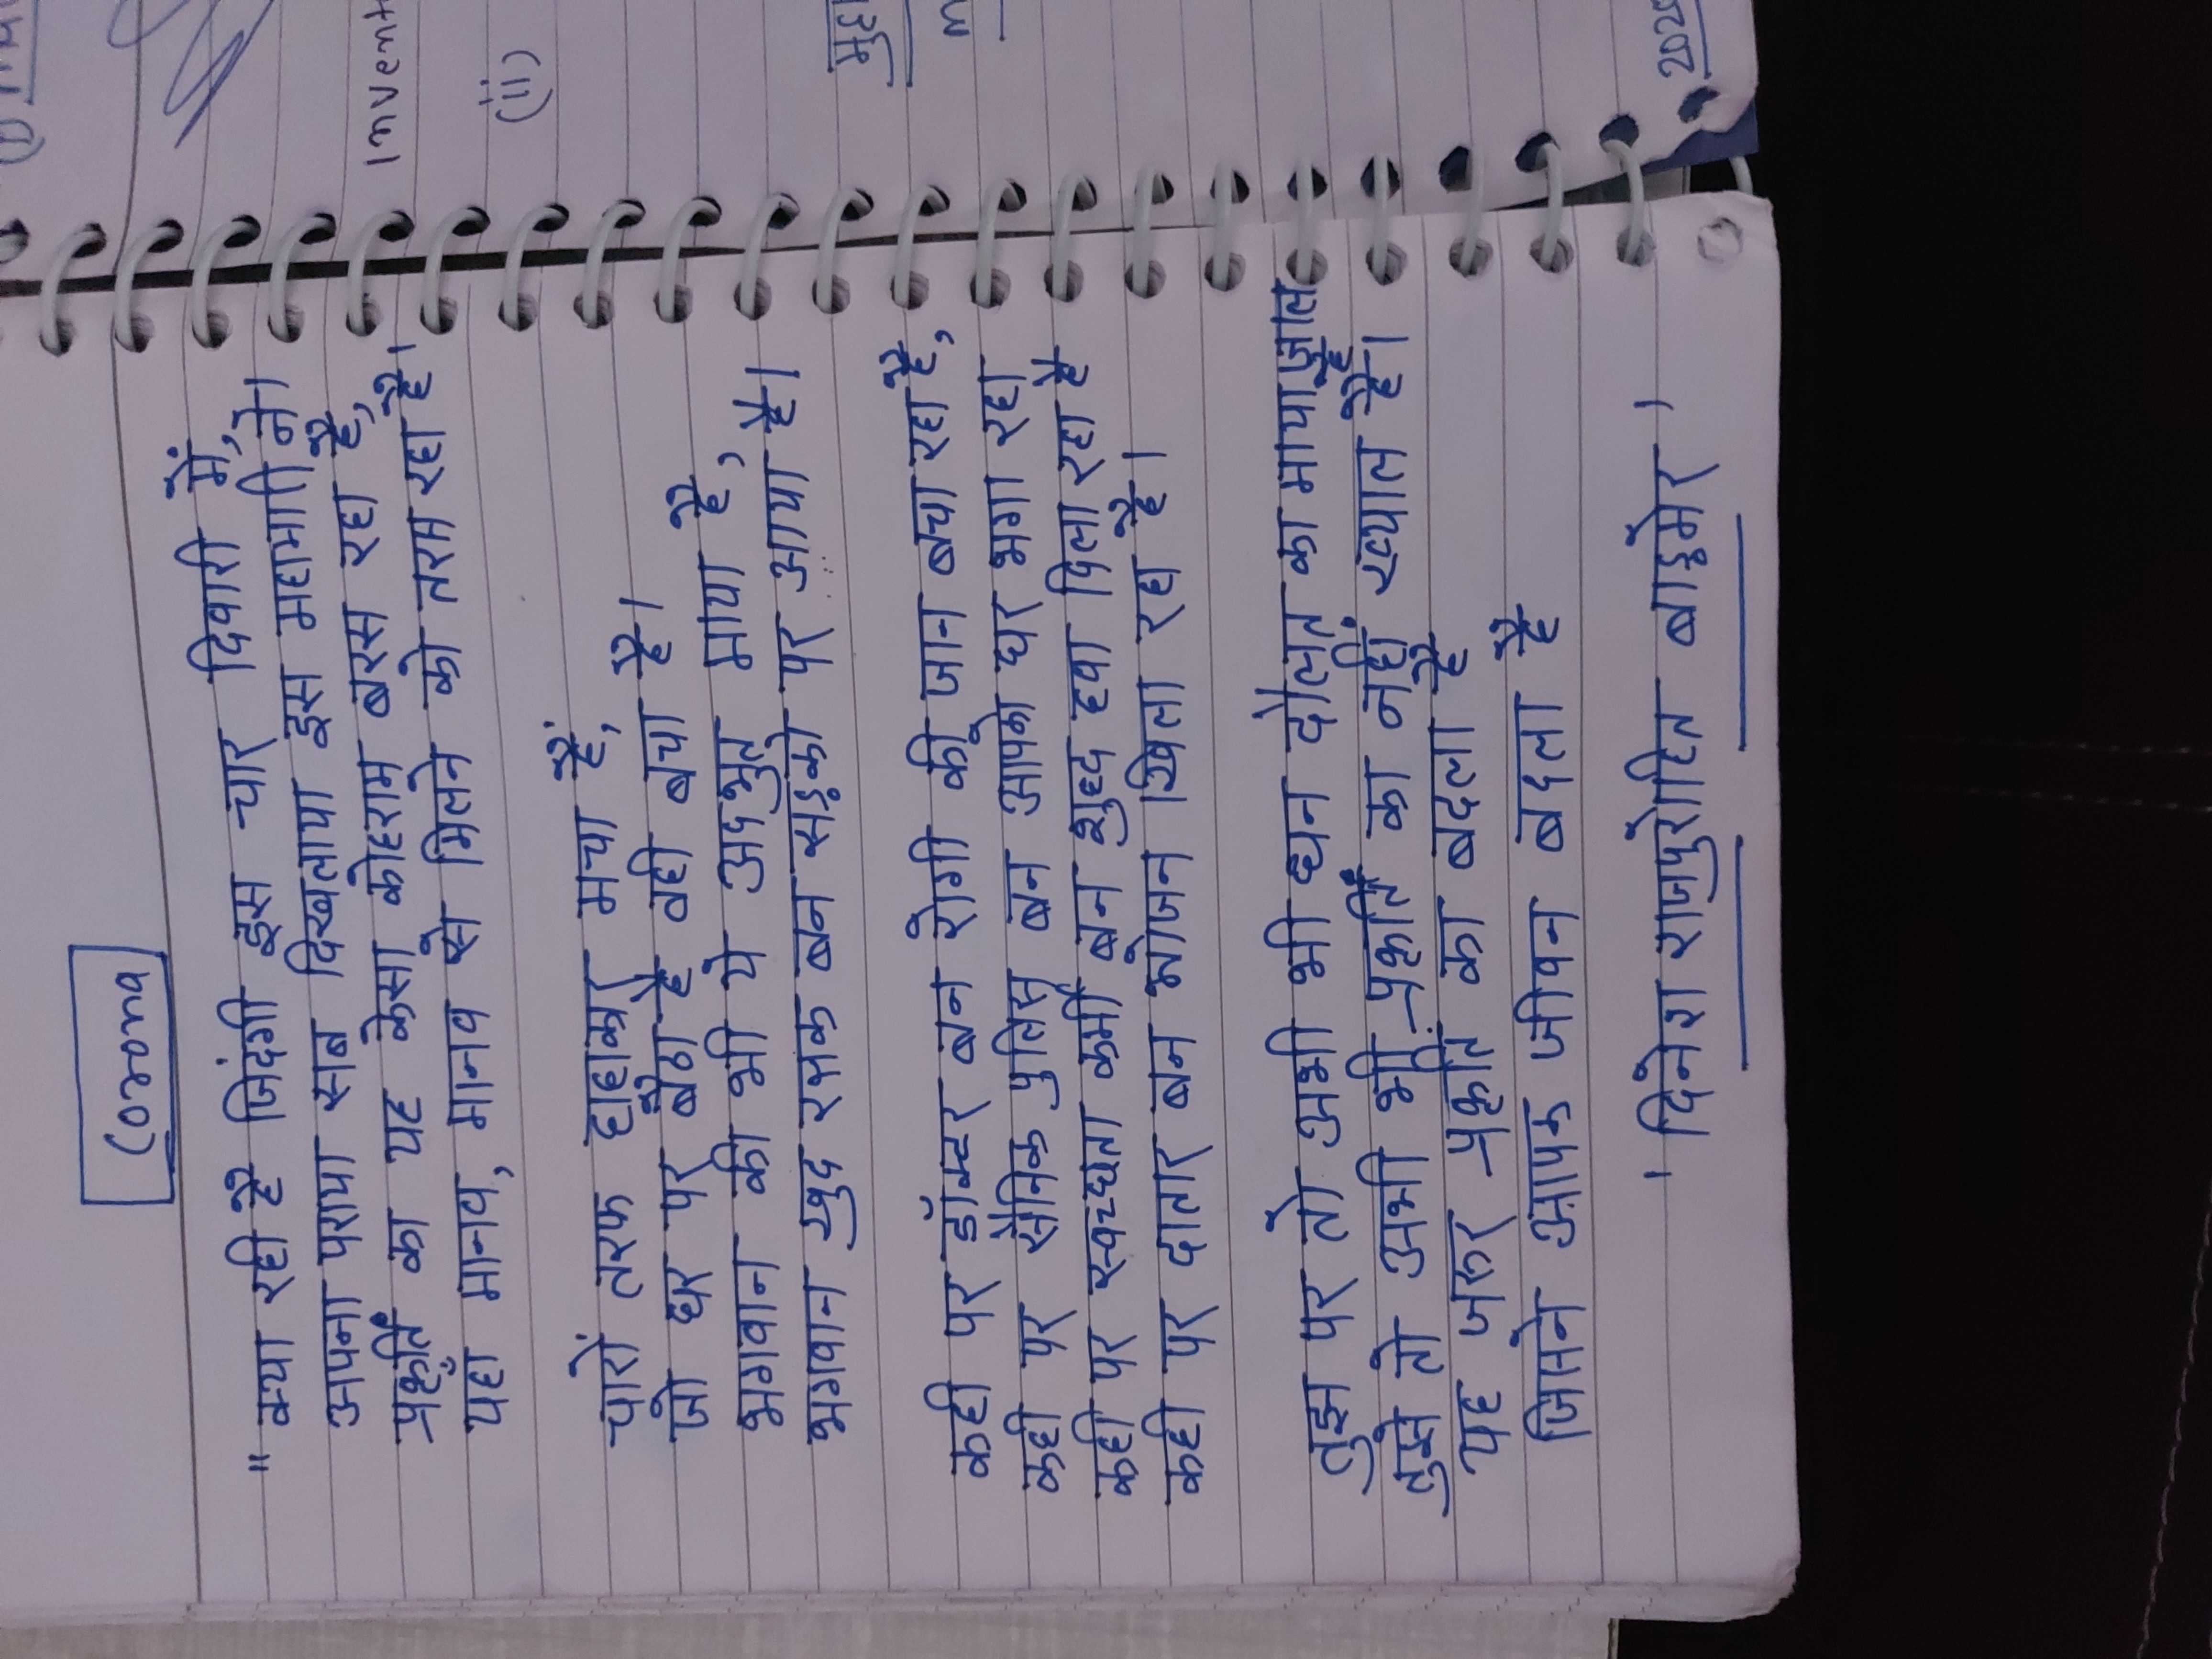 Corona
" क्या रही है जिंदगी इस चार दिवारी में,
अपना पराया सब दिखलाया इस महामारी ने।
प्रकृति का यह केसा कोहराम बरस रहा है,
यहा मानव, मानव से मिलने को तरस रहा है।
चारों तरफ हाहाकार मचा हैं,
जो घर पर बैठा है वही बचा है।
भगवान की भी ये अदभुत माया है,
भगवान खुद रक्षक बन सड़को पर आया है।
कही पर डॉक्टर बन रोगी की जान बचा रहा है,
कही पर सैनिक पुलिस बन आपको घर भगा रहा
कही पर स्वच्छता कर्मी बन शुद्द हवा दिला रहा है
कही पर दातार बन भोजन खिला रहा है।
तुझ पर तो अभी भी धन दोलत का मायाजाल है
तुझे तो अभी भी प्रकृति का नहीं ख्याल है।
यह जरूर प्रकृति का बदला है
जिसने आपका जीवन बदला है
' दिनेश राजपुरोहित बाड़मेर '
Invent
(ii)
मुह
202